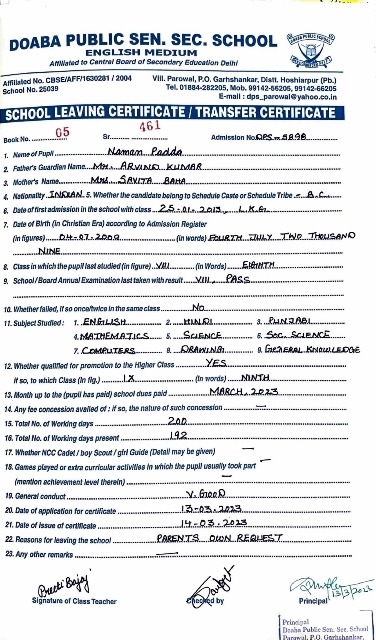 DOABA PUBLIC SEN. SEC. SCHOOL
ENGLISH MEDIUM
Affiliated to Central Board of Secondary Education Delhi
Affiliated No. CBSE/AFF/1630281 / 2004 Vill. Parowal, P.O. Garhshankar, Distt. Hoshiarpur (Pb.)
School No. 25039 Tel. 01884-282205, Mob. 99142-66205, 99142-66205
E-mail : dps_parowal@yahoo.co.in
SCHOOL LEAVING CERTIFICATE / TRANSFER CERTIFICATE
Book No. 05 Sr. 461 Admission No. DPS-5898
1. Name of Pupil Naman Padda
2. Father's Guardian Name Mr. ARVIND KUMAR
3. Mother's Name Mrs. SAVITA BAHA
4. Nationality INDIAN 5. Whether the candidate belong to Schedule Caste or Schedule Tribe - B.C.
6. Date of first admission in the school with class 25-01-2013, L.K.G.
7. Date of Birth (in Christian Era) according to Admission Register
(in figures) 04-07-2009 (in words) FOURTH JULY TWO THOUSAND
NINE
8. Class in which the pupil last studied (in figure) VIII (in Words) EIGHTH
9. School / Board Annual Examination last taken with result VIII, PASS
10. Whether failed, if so once/twice in the same class No
11. Subject Studied : 1. ENGLISH 2. HINDI 3. PUNJABI
4. MATHEMATICS 5. SCIENCE 6. SOC. SCIENCE
7. COMPUTERS 8. DRAWING 9. GENERAL KNOWLEDGE
12. Whether qualified for promotion to the Higher Class YES
If so, to which Class (In fig.) IX (In words) NINTH
13. Month up to the (pupil has paid) school dues paid MARCH, 2023
14. Any fee concession availed of : if so, the nature of such concession —
15. Total No. of Working days 200
16. Total No. of Working days present 192
17. Whether NCC Cadet / boy Scout / girl Guide (Detail may be given) —
18. Games played or extra curricular activities in which the pupil usually took part —
(mention achievement level therein) —
19. General conduct V. GOOD
20. Date of application for certificate 13-03-2023
21. Date of issue of certificate 14-03-2023
22. Reasons for leaving the school PARENTS OWN REQUEST
23. Any other remarks —
Signature of Class Teacher Checked by Principal
Principal
Doaba Public Sen. Sec. School
Parowal, P.O. Garhshankar,